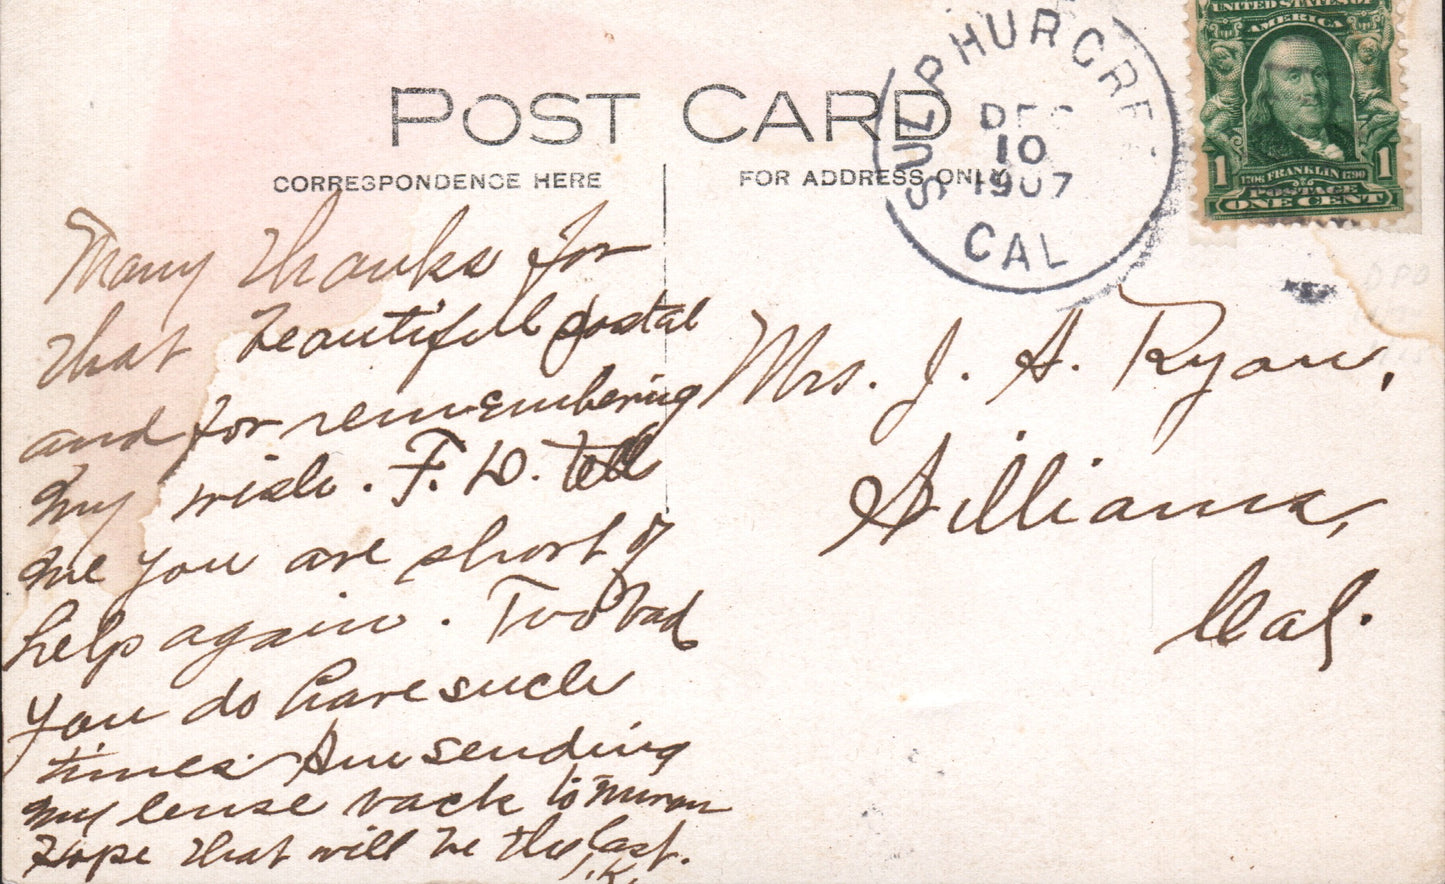 POST CARD
CORRESPONDENCE HERE
FOR ADDRESS ONLY
SULPHUR CREE
DEC
10
1907
CAL
UNITED STATES OF
AMERICA
1 1706 FRANKLIN 1790 1
POSTAGE
ONE CENT
Many thanks for
that beautiful postal
and for remembering
my wish. F. D. tell
me you are short of
help again. Too bad
you do have such
times. Am sending
my lense back to
Hope that will be the last.
K.
Mrs. J. A. Ryan,
Williams,
Cal.
DPO